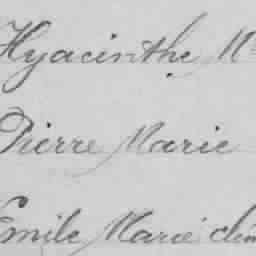 Hyacinthe
Pierre Marie
Emile Marie